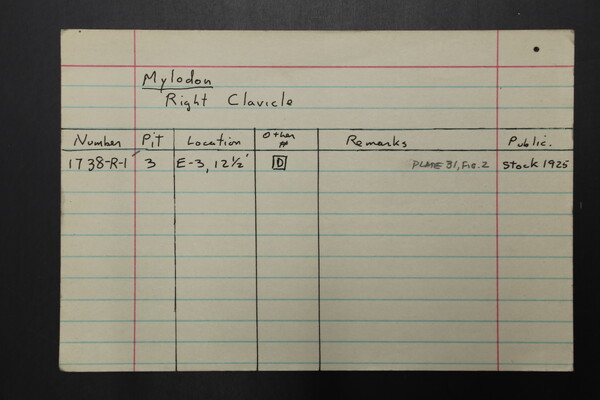 Mylodon
Right Clavicle
Number Pit Location Other # Remarks Public.
1738-R-1 3 E-3, 12½' D PLATE 31, FIG. 2 Stock 1925